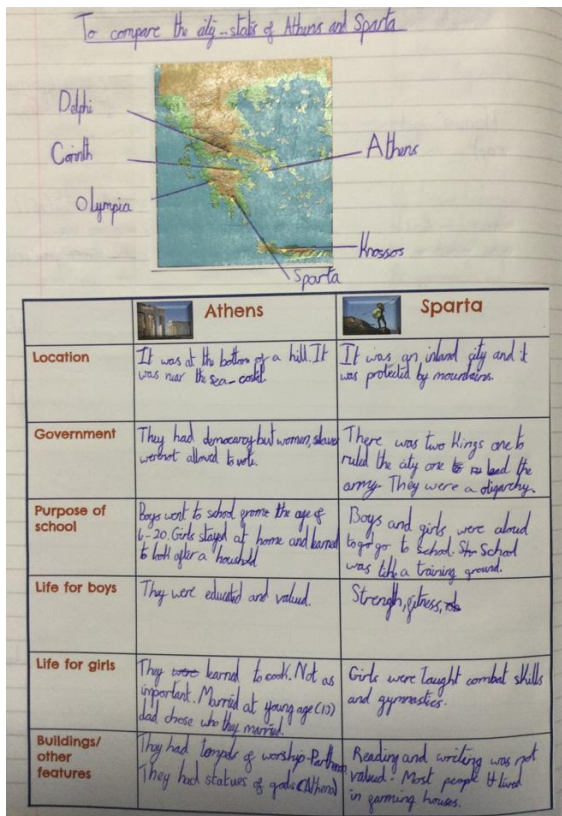 To compare the city-states of Athens and Sparta
Delphi
Corinth
Olympia
Athens
Knossos
Sparta
Athens
Sparta
Location
It was at the bottom of a hill. It
was near the sea-coast.
It was an inland city and it
was protected by mountains.
Government
They had democarcy but women, slaves
were not allowed to vote.
There was two Kings one to
ruled the city one to lead the
army. They were a oligarchy.
Purpose of
school
Boys went to school grome the age of
6-20. Girls stayed at home and learned
to look after a houshold
Boys and girls were aloud
to go go to school. School
was like a training ground.
Life for boys
They were educated and valued.
Strength, fitness,
Life for girls
They were learned to cook. Not as
important. Married at young age (13)
dad chose who they married.
Girls were taught combat skills
and gymnastics.
Buildings/
other
features
They had temples of worship-Parthen
They had statues of gods (Athena)
Reading and writing was not
valued. Most people lived
in farming houses.